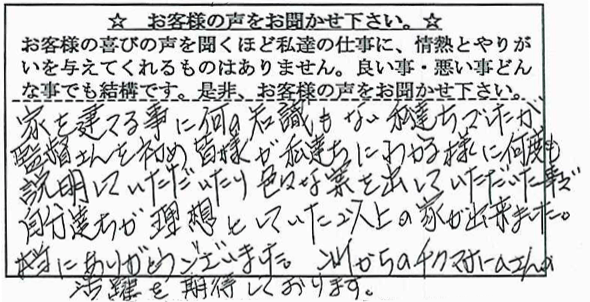 ☆ お客様の声をお聞かせ下さい。☆
お客様の喜びの声を聞くほど私達の仕事に、情熱とやりが
いを与えてくれるものはありません。良い事・悪い事どん
な事でも結構です。是非、お客様の声をお聞かせ下さい。
家を建てる事に何の知識もない私達ちでしたが
監督さんを初め皆様が私達ちにわかる様に何度も
説明していただいたり色々な案を出していただいた事で
自分達ちが理想としていた以上の家が出来ました。
本当にありがとうございました。これからのチクマホームさんの
活躍を期待しております。